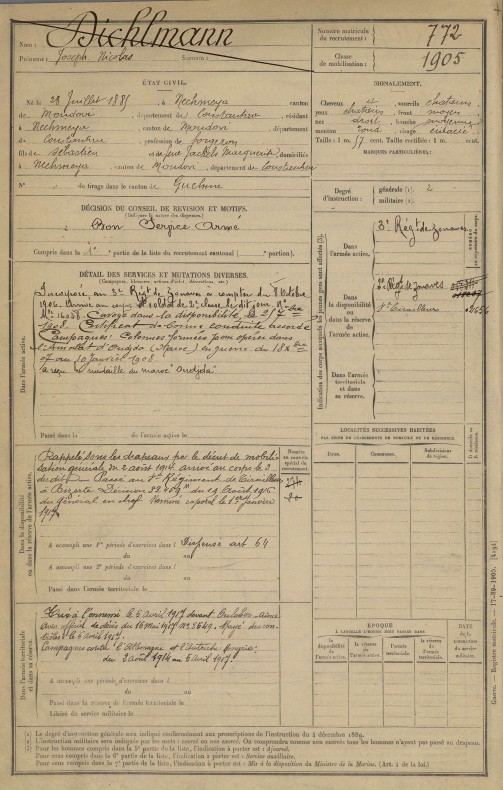 Nom : Dichlmann
Prénoms : Joseph Nicolas Surnoms :
Numéro matricule du recrutement : 772
Classe de mobilisation : 1905
ÉTAT CIVIL.
Né le 28 Juillet 1885, à Nechmeya canton
de Mondovi, département de Constantine, résidant
à Nechmeya canton de Mondovi, département
de Constantine profession de forgeron
fils de Sébastien et de feue Jackels Marguerite, domiciliés
à Nechmeya canton de Mondovi, département de Constantine
N° du tirage dans le canton de Guelma
SIGNALEMENT.
Cheveux et sourcils chatains
yeux chatains front moyen
nez droit bouche moyenne
menton rond visage
Taille : 1 m. 57 cent. Taille rectifiée : 1 m. cent.
MARQUES PARTICULIÈRES :
DÉCISION DU CONSEIL DE REVISION ET MOTIFS.
(Indiquer la nature des dispenses.)
Bon Service Armé
Compris dans la 1e partie de la liste du recrutement cantonal ( portion).
Degré d'instruction : générale (1). 2
militaire (2).
DÉTAIL DES SERVICES ET MUTATIONS DIVERSES.
(Campagnes, blessures, actions d'éclat, décorations, etc.)
Dans l'armée active.
Incorporé au 3e Régt de Zouaves à compter du 8 Octobre
1906. Arrivé au corps et soldat de 2e classe le dit jour.
Mle 16058. Envoyé dans la disponibilité le
1908. Certificat de bonne conduite accordé
Campagnes : Colonnes formées pour opérer dans
l'Amalat d'Oudjda (Maroc) en guerre du 18
07 au 10 janvier 1908
a reçu la médaille du maroc "Oudjda"
Passé dans la de l'armée active le
Indication des corps auxquels les jeunes gens sont affectés (3).
Dans l'armée active. 3e Régt de Zouaves
Dans la disponibilité ou dans la réserve de l'armée active. 3e Régt de Zouaves
Tirailleurs
Dans l'armée territoriale et dans sa réserve.
NUMÉRO
LOCALITÉS SUCCESSIVES HABITÉES
PAR SUITE DE CHANGEMENTS DE DOMICILE OU DE RÉSIDENCE.
Dates. Communes. Subdivisions de région.
D domicile ou R résidence.
Dans la disponibilité ou dans la réserve de l'armée active.
Rappelé sous les drapeaux par le décret de mobili-
sation générale du 2 août 1914. arrivé au corps le 3
du dit Passé au Régiment de Tirailleurs
à Bizerte Décision
du Général en chef Nommé caporal le 1er janvier
1917
Numéro au contrôle spécial du recrutement.
A accompli une 1re période d'exercices dans l Dispensé art 64
du au
A accompli une 2e période d'exercices dans l
du au
Passé dans l'armée territoriale le
Dans l'armée territoriale et dans sa réserve.
Tué à l'ennemi le 5 Avril 1917 devant
Avis officiel de décès du 16 Mai 1917 Rayé des con-
trôles le 6 avril 1917.
Campagnes contre l'Allemagne et l'Autriche Hongrie :
du 2 août 1914 au 5 Avril 1917.
A accompli une période d'exercices dans l
du au
Passé dans la réserve de l'armée territoriale le
Libéré du service militaire le
ÉPOQUE
À LAQUELLE L'HOMME DOIT PASSER DANS
la disponibilité de l'armée active. la réserve de l'armée active. l'armée territoriale. la réserve de l'armée territoriale.
DATE de la libération du service militaire.
Guerre. — Registre matricule. — 17-89-1905. [4191]
(1) Le degré d'instruction générale sera indiqué conformément aux prescriptions de l'instruction du 4 décembre 1889.
(2) L'instruction militaire sera indiquée par les mots : exercé ou non exercé. On comprendra comme non exercés tous les hommes n'ayant pas passé au drapeau.
(3) Pour les hommes compris dans la 5e partie de la liste, l'indication à porter est : Ajourné.
Pour ceux compris dans la 6e partie de la liste, l'indication à porter est : Service auxiliaire.
Pour ceux compris dans la 7e partie de la liste, l'indication à porter est : Mis à la disposition du Ministre de la Marine. (Art. 4 de la loi.)